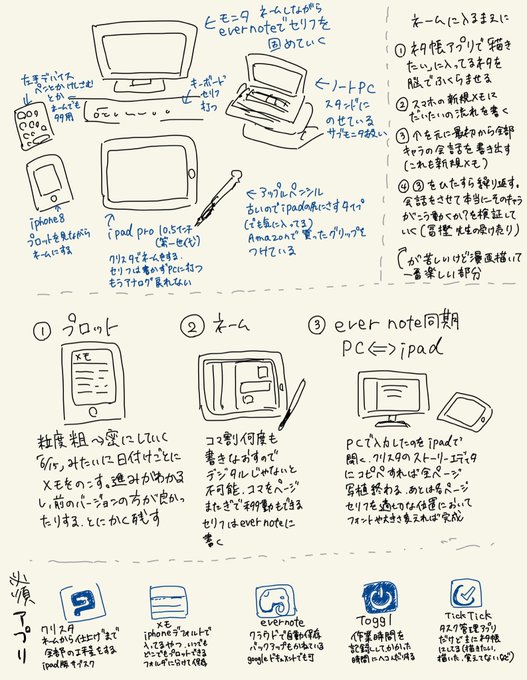 モニタ ネームしながら
evernoteでセリフを
固めていく
左手デバイス
ペンとかけしごむ
とか
ネームでも
99用
キーボード
セリフ
打つ
ノートPC
スタンドに
のせている
サブモニタ扱い
iphone8
プロットを見ながら
ネームにする
ipad pro 10.5インチ
(第一世代)
クリスタでネームをする.
セリフは書かずPCに打つ
もうアナログ戻れない
アップルペンシル
古いのでipadの尻にさすタイプ
(でも気に入ってる)
Amazonで買ったグリップも
つけている
ネームに入るまえに
① ネタ帳アプリで「描き
たい」に入ってるネタを
脳でふくらませる
② スマホの新規メモに
だいたいの流れを書く
③ ②を元に最初から全部
キャラの会話を書き出す
(これも新規メモ)
④ ③をひたすら繰り返す。
会話をさせて本当にそのキャラ
がこう動くか?を検証して
いく(冨樫先生の受け売り)
が苦しいけど漫画描いて
一番楽しい部分
① プロット
メモ
粒度 粗→密にしていく
「6/15」みたいに日付けごとに
メモをのこす。進みがわかる
し、前のバージョンの方が良かっ
たりする. とにかく残す
② ネーム
コマ割 何度も
書きなおすので
デジタルじゃないと
不可能. コマをページ
またぎで移動もできる
セリフはevernoteに
書く
③ ever note同期
PC⇔ipad
PCで入力したのをipadで
開く. クリスタのストーリーエディタ
にコピペすれば全ページ
写植終わる. あとは各ページ
セリフを適切な位置において
フォントや大きさ変えれば完成
必須アプリ
クリスタ
ネームから仕上げまで
全部の工程をする
ipad版サブスク
メモ
iphoneデフォルトで
入ってるやつ. いつでも
どこでもプロットできる
フォルダに分けて保存
evernote
クラウドで自動保存
バックアップもかねている
googleドキュメントでも可
Toggl
作業時間を
記録してくれるから
時間にハコが作れる
TickTick
タスク管理アプリ
だけどネタ帳
にしてる(描きたい、
描いた、覚えてないなど)